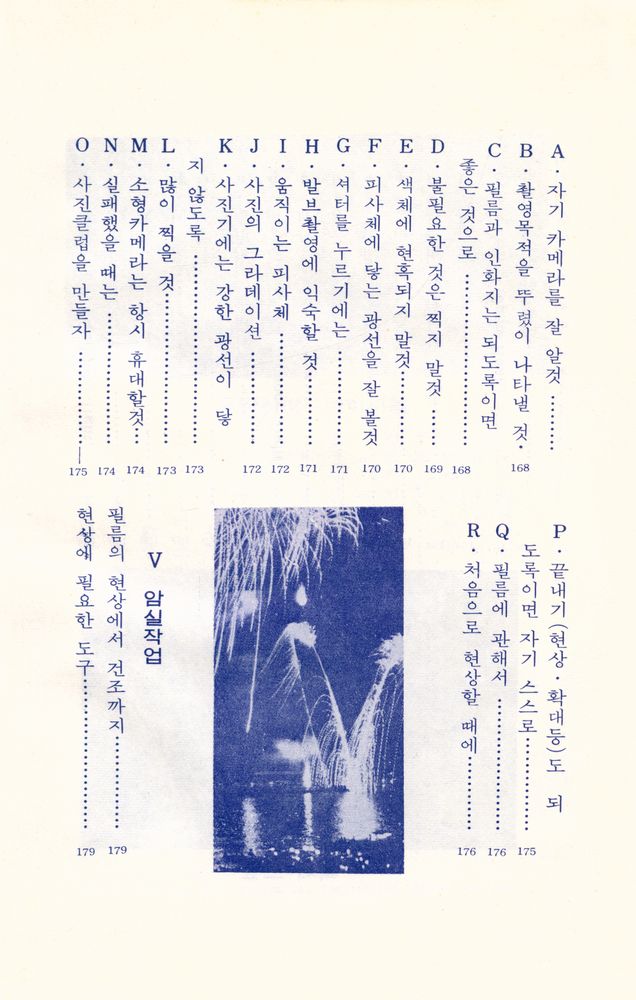 A · 자기 카메라를 잘 알것 ……
B · 촬영목적을 뚜렸이 나타낼 것 · 168
C · 필름과 인화지는 되도록이면
좋은 것으로 …… 168
D · 불필요한 것은 찍지 말것 …… 169
E · 색체에 현혹되지 말것 …… 170
F · 피사체에 닿는 광선을 잘 볼것 170
G · 셔터를 누르기에는 …… 171
H · 발브촬영에 익숙할 것 …… 171
I · 움직이는 피사체 …… 172
J · 사진의 그라데이션 …… 172
K · 사진기에는 강한 광선이 닿
지 않도록 …… 173
L · 많이 찍을 것 …… 173
M · 소형카메라는 항시 휴대할것 …… 174
N · 실패했을 때는 …… 174
O · 사진클럽을 만들자 …… 175
P · 끝내기(현상 · 확대등)도 되
도록이면 자기 스스로 …… 175
Q · 필름에 관해서 …… 176
R · 처음으로 현상할 때에 …… 176
V 암실작업
필름의 현상에서 건조까지 …… 179
현상에 필요한 도구 …… 179